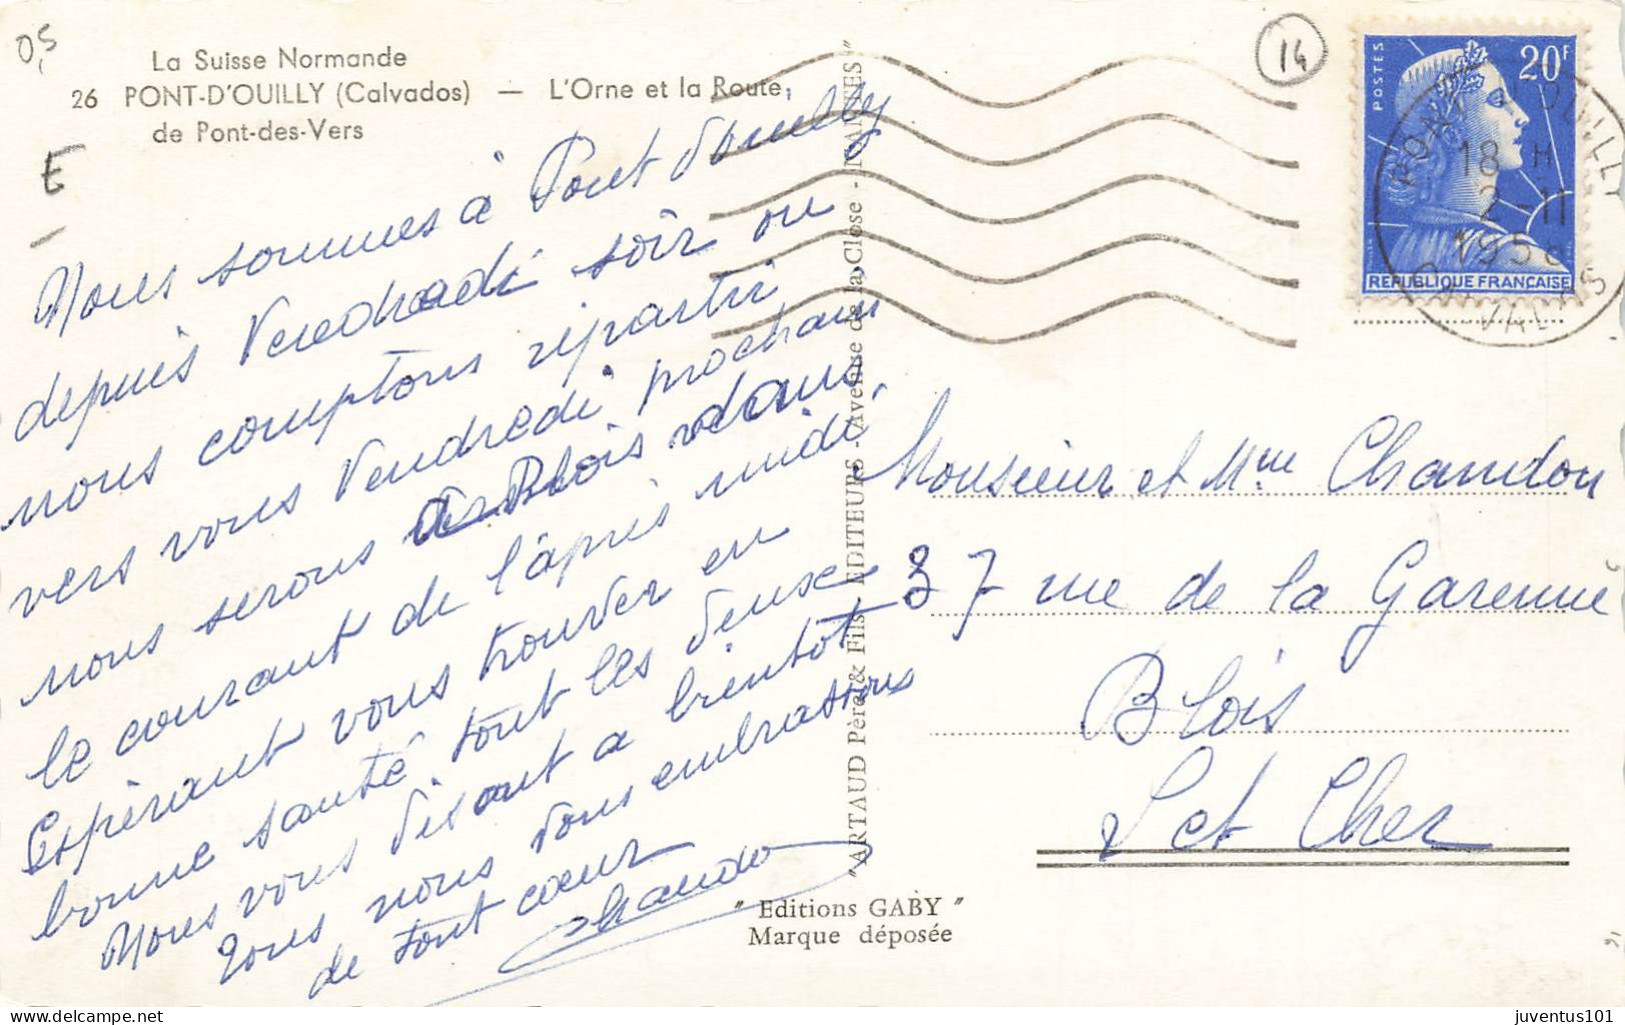 0,5
La Suisse Normande
26 PONT-D'OUILLY (Calvados) — L'Orne et la Route,
de Pont-des-Vers
E
Nous sommes à Pont douilly
depuis Vendredi soir ou
nous comptons répartir
vers vous Vendredi prochain
nous serons à Blois dans
le courant de l'après midi,
Espérant vous trouver en
bonne santé tout les deux
Nous vous disant a bientôt
nous vous embrassons
de tout cœur
Chandon
"ARTAUD Père & Fils, EDITEURS - Avenue de la Close - NANTES"
" Editions GABY "
Marque déposée
14
POSTES
20F
REPUBLIQUE FRANÇAISE
PONT D'OUILLY
18 H
2-11
1958
CALVADOS
Monsieur et Mme Chandon
37 rue de la Garenne
Blois
L et Cher
delcampe.net
juventus101